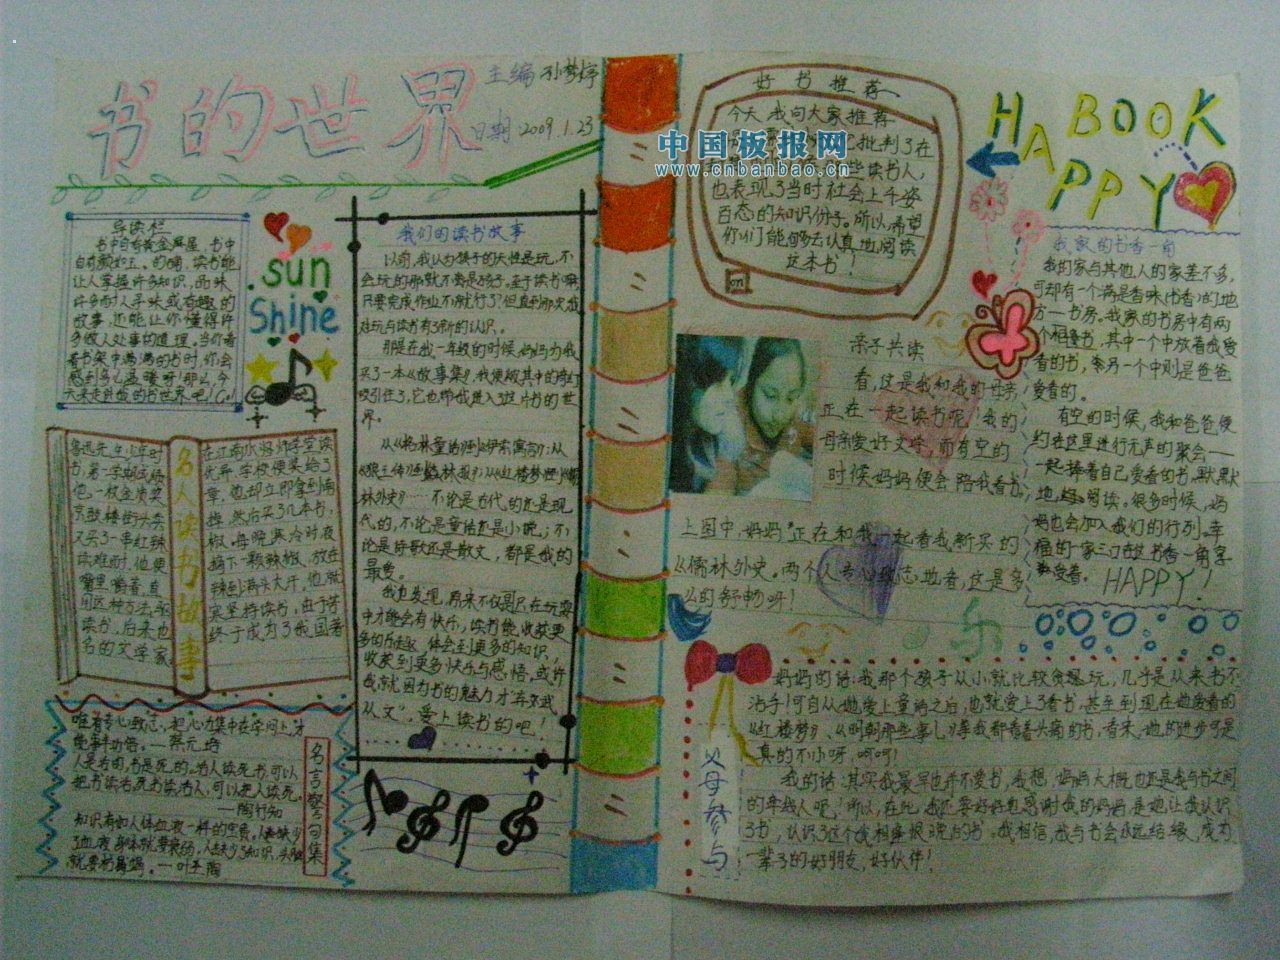 书的世界
主编 孙梦婷
日期 2009.1.23
导读栏
书中自有黄金屋,书中
自有颜如玉。的确,读书能
让人掌握许多知识,而味
许多耐人寻味或有趣的
故事,还能让你懂得许
多做人处事的道理。当你看
看书架中满满的书时,你会
感到多么温暖呀!那么,今
天来走进我的书世界吧!Go!
sun
Shine
我们的读书故事
以前,我认为孩子的天性是玩,不
会玩的那就不算是孩子。至于读书嘛,
只要完成作业不就行了?但直到那次我
对玩与读书有了新的认识。
那是在我一年级的时候,妈妈为我
买了一本《故事集》,我便被其中的奇幻
吸引住了,它也带我进入了这片书的世
界。
从《格林童话》到《伊索寓言》;从
林外史》……不论是古代的还是现
代的,不论是童话还是小说;不
论是诗歌还是散文,都是我的
最爱。
我也发现,原来不仅是只在玩耍
中才能会有快乐,读书能收获更
多的乐趣,体会到更多的知识,
收获到更多快乐与感悟,或许
我就因为书的魅力才“弃玩
从文”,爱上读书的吧!
名人读书故事
鲁迅先生少年时
书,第一学期成绩
他一枚金质奖
京鼓楼街头卖
又买了一串红辣
读难耐时,他便
嘴里嚼着,直
用这种方法驱
读书。后来也
名的文学家。
在江南水师学堂读
优异,学校便奖给了
章。他却立即拿到南
掉,然后买了几本书,
椒。每晚寒冷时,夜
摘下一颗辣椒,放在
辣到满头大汗。他就
寒坚持读书。由于苦
终于成为了我国著
名言警句集
唯有专心致志,把心力集中在学问上,才
能事半功倍。—蔡元培
人是活的,书是死的。活人读死书,可以
把书读活。死书读活人,可以把人读死。
—陶行知
知识有如人体血液一样的宝贵。人缺少
了血液,身体就要衰弱,人缺少了知识,头脑
就要枯竭。—叶圣陶
好书推荐
今天,我向大家推荐
批判了在
些读书人,
也表现了当时社会上千姿
百态的知识份子。所以,希望
你们能够去认真地阅读
这本书!
on
中国板报网
www.cnbanbao.cn
HAPPY BOOK
亲子共读
看,这是我和我的母亲
正在一起读书呢!我的
母亲爱好文学,而有空的
时候妈妈便会陪我看书。
上图中,妈妈正在和我一起看我新买的
《儒林外史》。两个人专心致志地看,这是多
么的舒畅呀!
乐
我家的书香一角
我的家与其他人的家差不多,
可却有一个满是香味(书香)的地
方—书房。我家的书房中有两
个相连书,其中一个中放着我爱
看的书,另一个中则是爸爸
爱看的。
有空的时候,我和爸爸便
约在这里进行无声的聚会——
一起捧着自己爱看的书,默默
地阅读。很多时候,妈
妈也会加入我们的行列。幸
福的一家三口在这书香一角享
受着。
HAPPY!
父母参与
妈妈的话:我那个孩子从小就比较贪憨玩,几乎是从来书不
沾手!可自从她爱上童话之后,也就爱上了看书,甚至到现在她爱看的
《红楼梦》、《明朝那些事儿》等我都看着头痛的书,看来,她的进步可是
真的不小呀,呵呵!
我的话:其实我最早也并不爱书,我想,妈妈大概也还是我与书之间
的牵线人吧!所以,在此,我还要好好地感谢我的妈妈,是她让我认识
了书,认识了这个我相盛恨晚的书。我相信,我与书会永远结缘,成为
一辈子的好朋友,好伙伴!